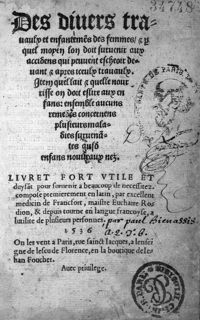 34748
Des diuers tra-
uaulx et enfantemẽs des femmes/ & p
quel moyen lon doit suruenir aux
accidens qui peuuent escheoir de-
uant & apres iceulx trauaulx.
Item quel lait & quelle nour
risse on doit eslire aux en
fans: ensemble aucuns
remedes concernens
plusieurs mala-
dies suruenã-
tes ausd
enfans nouueaux nez.
LIVRET FORT VTILE ET
compose premierement en latin, par excellent
medicin de Francfort, maistre Euchaire Ros
dion, & depuis tourne en langue francoyse, a
lutilite de plusieurs personnes. par paul Bienassis
1536
On les vent a Paris, rue sainct Iacques, a lensei
gne de lescu de Florence, en la boutique de Ie-
han Foucher.
Auec priuilege.